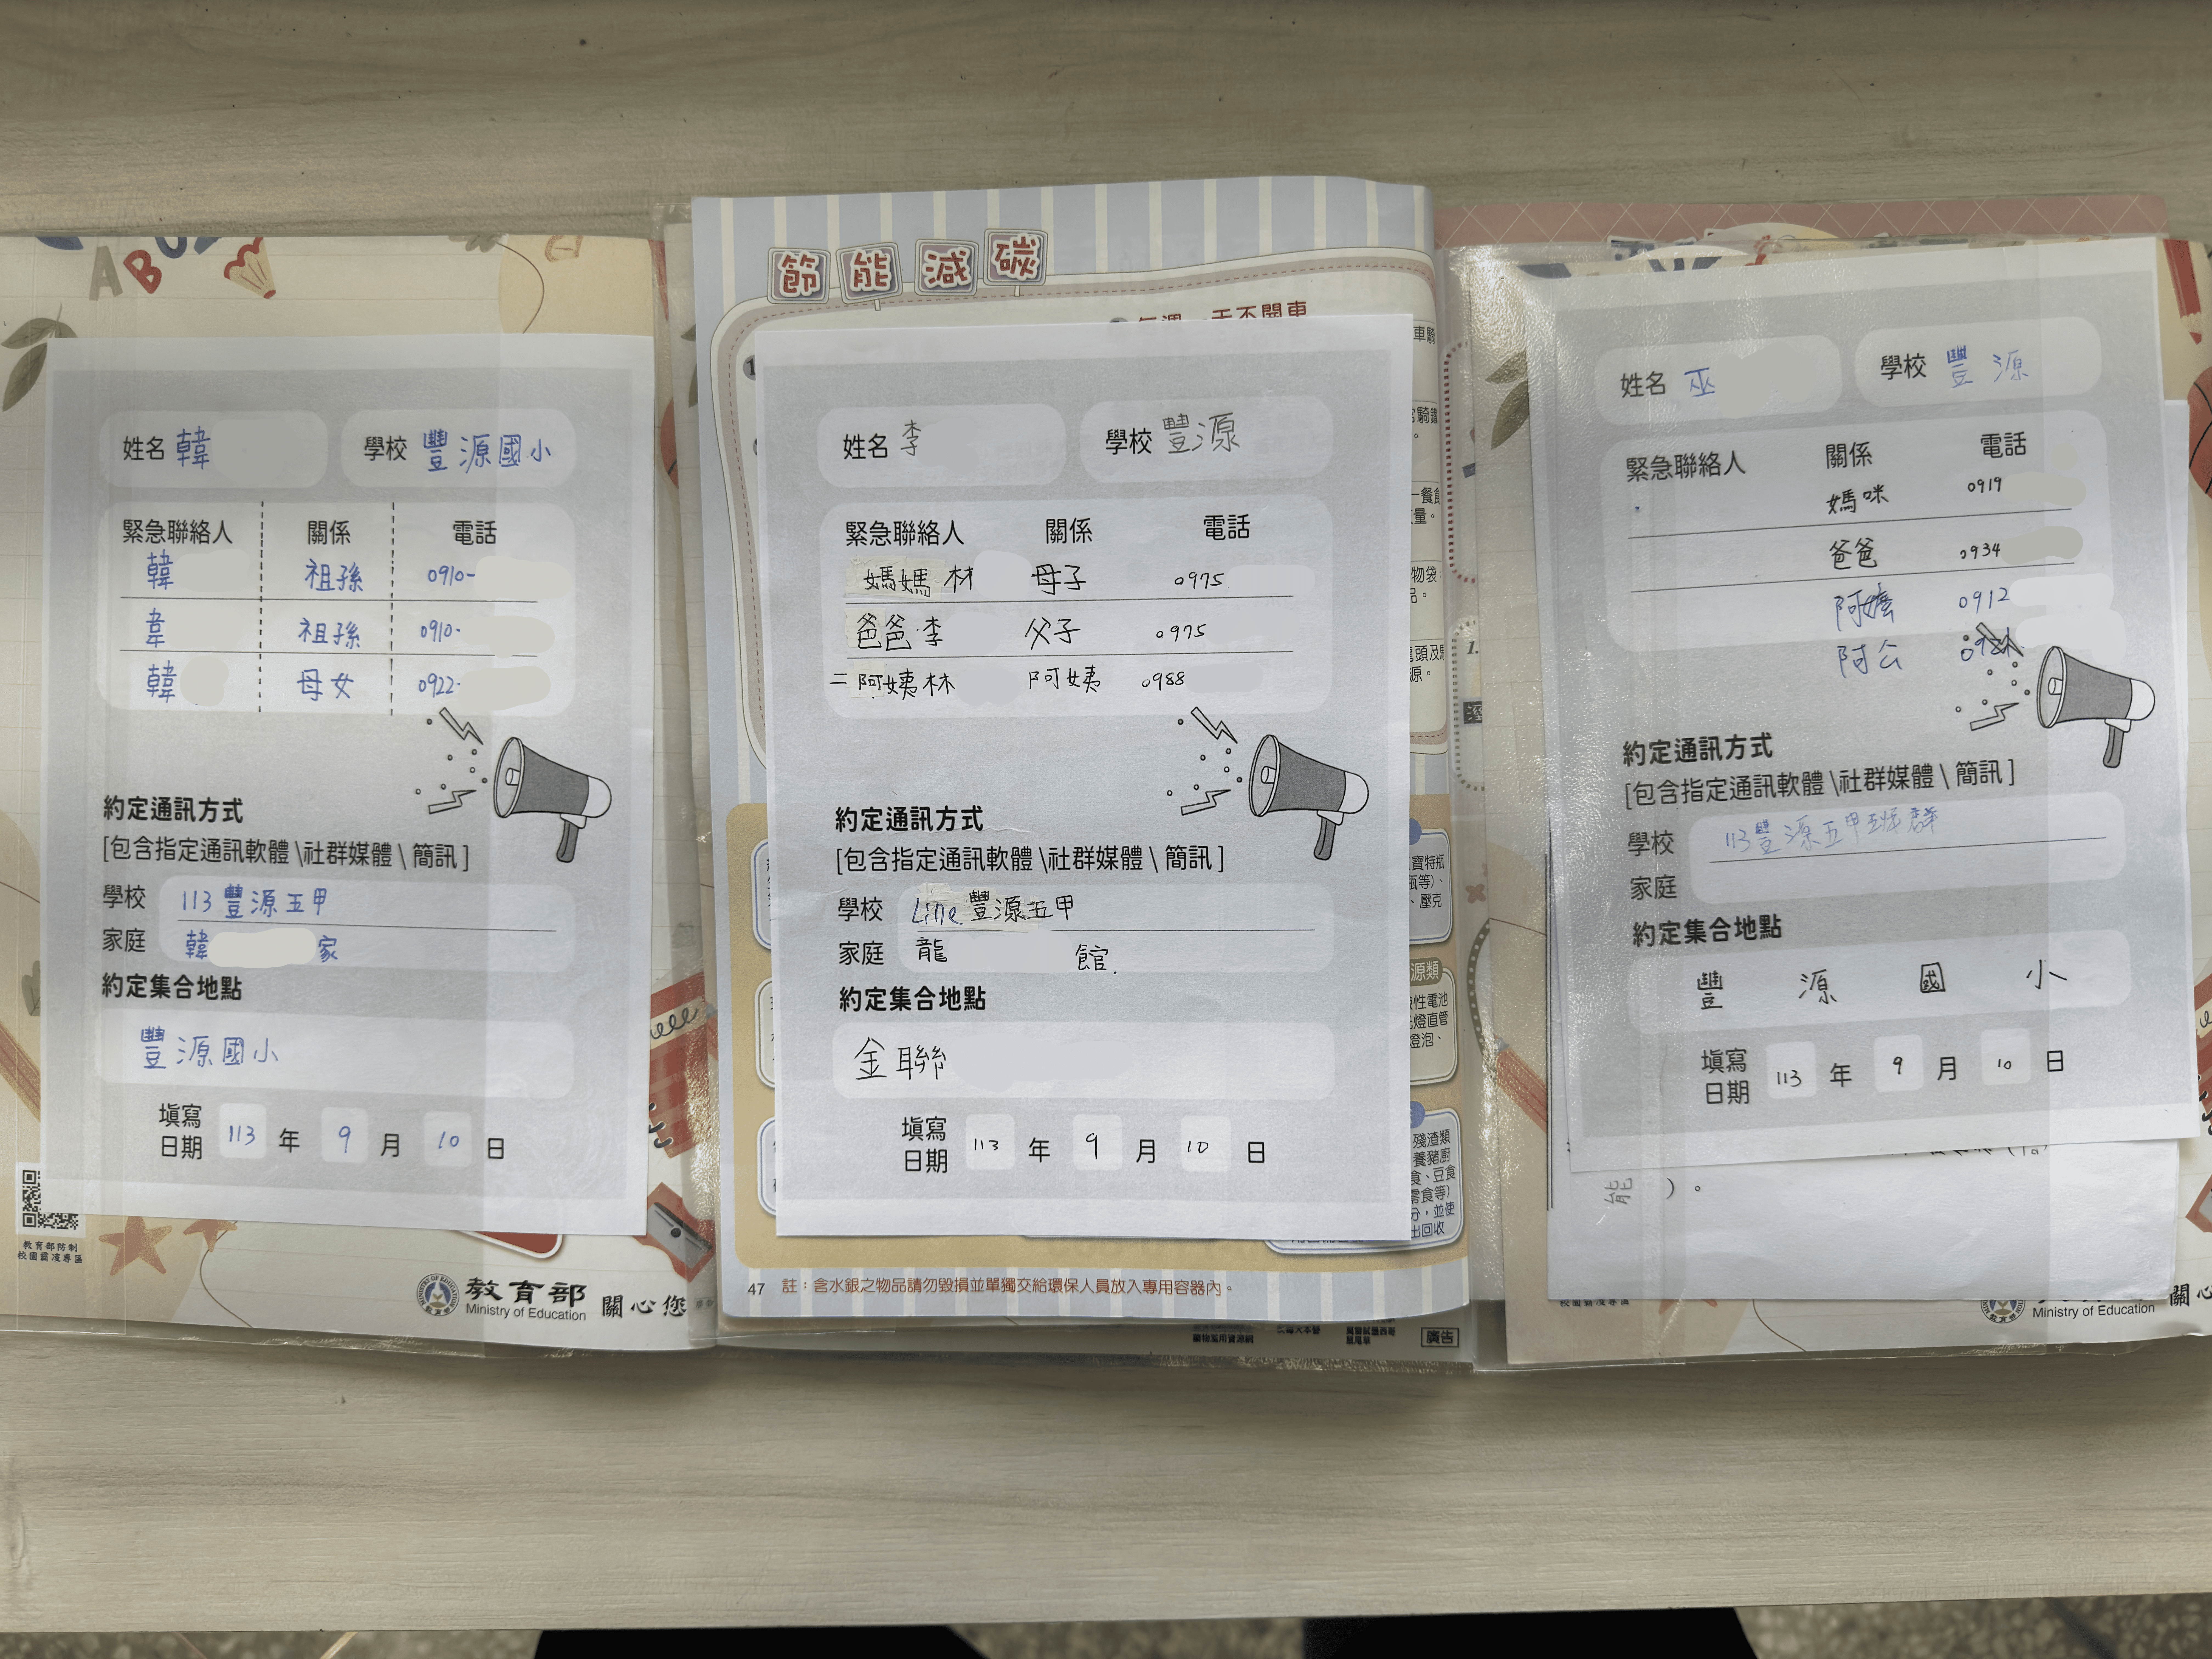 姓名 韓 學校 豐源國小
緊急聯絡人 關係 電話
韓 祖孫 0910-
韋 祖孫 0910-
韓 母女 0922-
約定通訊方式
[包含指定通訊軟體\社群媒體\簡訊]
學校 113豐源五甲
家庭 韓 家
約定集合地點
豐源國小
填寫日期 113 年 9 月 10 日
教育部防制
校園霸凌專區
教育部
Ministry of Education 關心您
節能減碳
天不開車
姓名 李 學校 豐源
緊急聯絡人 關係 電話
媽媽 林 母子 0975
爸爸 李 父子 0975
二阿姨林 阿姨 0988
約定通訊方式
[包含指定通訊軟體\社群媒體\簡訊]
學校 Line豐源五甲
家庭 龍 館.
約定集合地點
金聯
填寫日期 113 年 9 月 10 日
寶特瓶
瓶等)、
壓克
源類
性電池
燈直管
燈泡、
殘渣類
養豬廚
食、豆食
零食等)
分,並使
出回收
47 註:含水銀之物品請勿毀損並單獨交給環保人員放入專用容器內。
廣告
姓名 巫 學校 豐源
緊急聯絡人 關係 電話
媽咪 0919
爸爸 0934
阿嬤 0912
阿公
約定通訊方式
[包含指定通訊軟體\社群媒體\簡訊]
學校 113豐源五甲班群
家庭
約定集合地點
豐源國小
填寫日期 113 年 9 月 10 日
能 )。
Ministry of Education